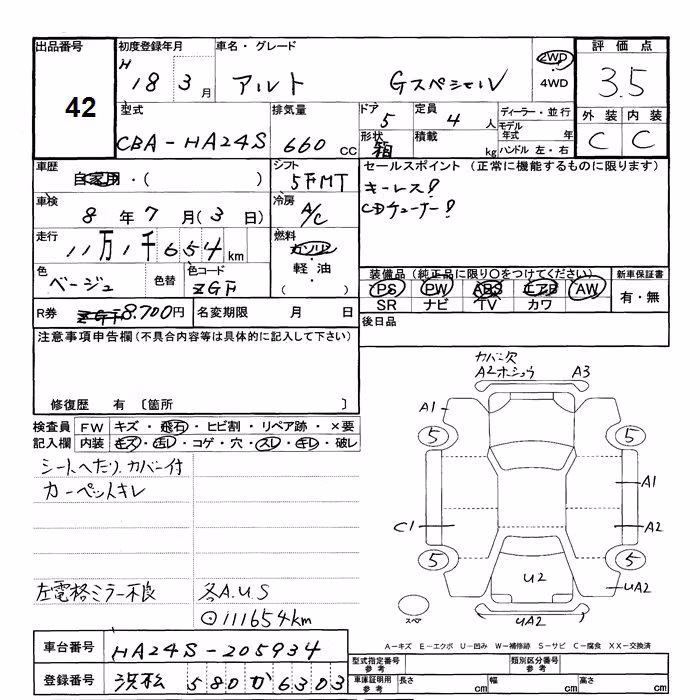 出品番号
42
初度登録年月
H 18 3月
車名・グレード
アルト Gスペシャル
2WD
・
4WD
評価点
3.5
外装 内装
C C
型式
CBA-HA24S
排気量
660 CC
ドア
5
定員
4人
形状
箱
積載
kg
ディーラー・並行
モデル年式 年
ハンドル 左・右
車歴
自家用・( )
シフト
5FMT
セールスポイント (正常に機能するものに限ります)
キーレス!
CDチューナー!
車検
8年7月(3日)
冷房
A/C
走行
11万1千654km
燃料
ガソリン
・
軽油
( )
色
ベージュ
色替
色コード
ZGF
装備品 (純正品に限り○をつけてください)
PS PW ABS エアB AW
SR ナビ TV カワ
新車保証書
有・無
R券
8,700円
名変期限 月 日
後日品
注意事項申告欄(不具合内容等は具体的に記入して下さい)
修復歴 有 〔箇所 〕
検査員記入欄
FW キズ・飛石・ヒビ割・リペア跡・×要
内装 キズ・汚レ・コゲ・穴・スレ・キレ・破レ
シートヘたり、カバー付
カーペットキレ
左電格ミラー不良
各A.U.S
⊙111654km
カバー欠
A2ホショウ A3
A1
5 5
A1
C1 A2
5 5
U2
UA2
スペア
UA2
A-キズ E-エクボ U-凹み W-補修跡 S-サビ C-腐食 XX-交換済
車台番号
HA24S-205934
登録番号
浜松 580 か 6303
型式指定番号
参考
類別区分番号
参考
車庫証明用
参考
長さ cm 幅 cm 高さ cm